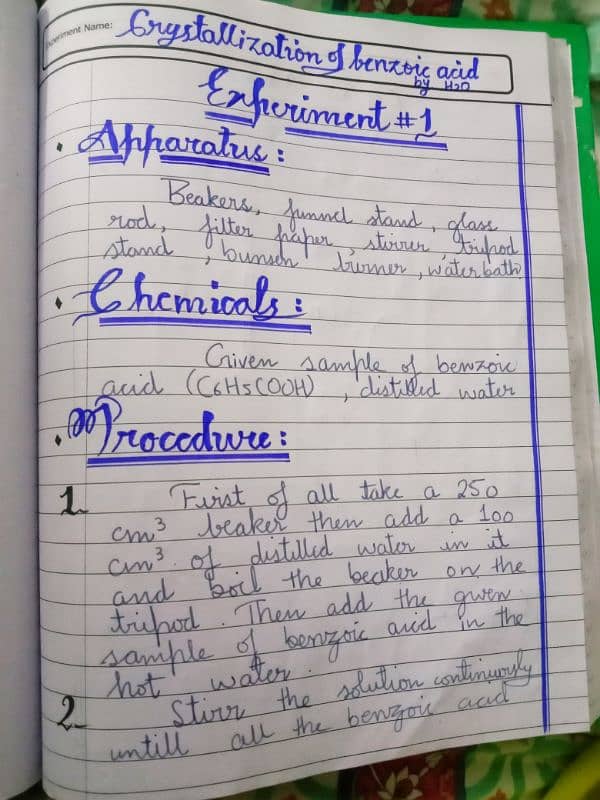 Experiment Name: Crystallization of benzoic acid
by H2O
Experiment #1
• Apparatus:
Beakers, funnel stand, glass
rod, filter paper, stirrer, tripod
stand, bunsen burner, water bath.
• Chemicals:
Given sample of benzoic
acid (C6H5COOH), distilled water
• Procedure:
1. First of all take a 250
cm³ beaker then add a 100
cm³ of distilled water in it
and boil the beaker on the
tripod. Then add the given
sample of benzoic acid in the
hot water.
2. Stirr the solution continuously
untill all the benzoic acid